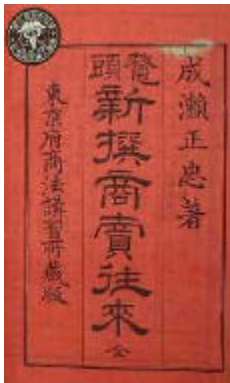 成瀬正忠著
鼇頭
新撰商賣往來
全
東京府商法講習所藏版